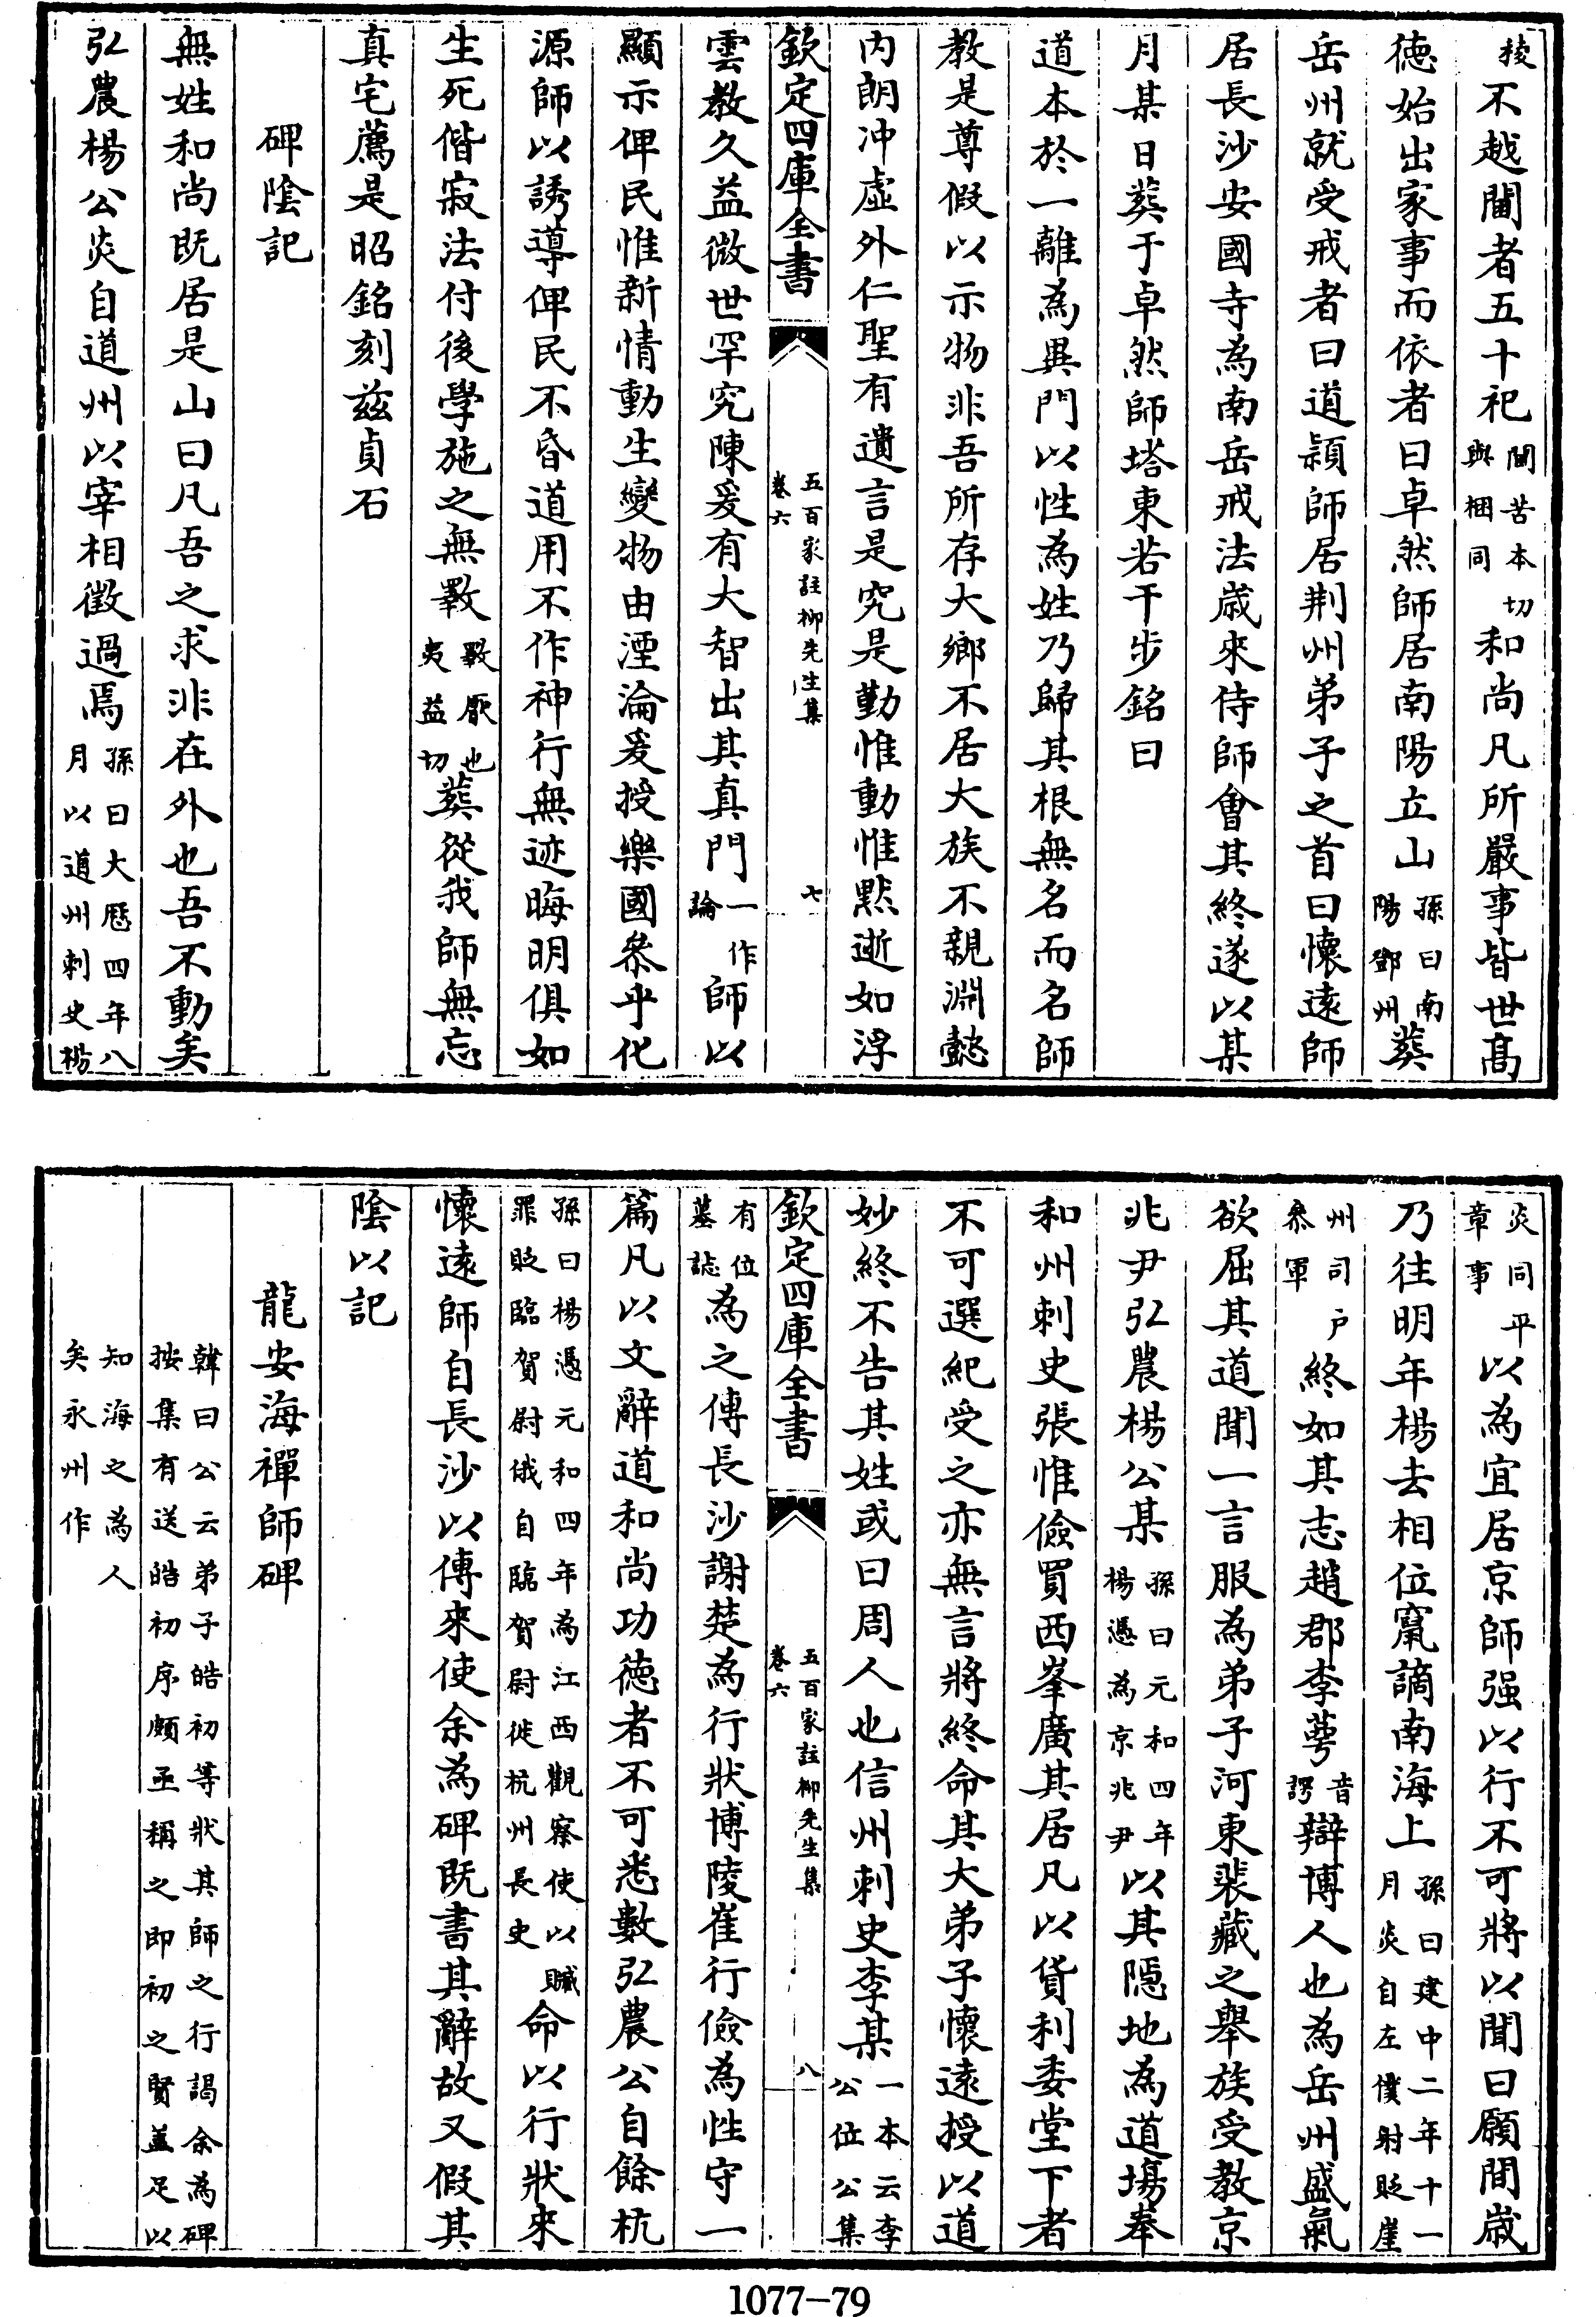 稜不越閫者五十祀閫苦本切與梱同和尚凡所嚴事皆世高
徳始出家事而依者曰卓然師居南陽立山孫曰南陽鄧州葬
岳州就受戒者曰道穎師居荆州弟子之首曰懷逺師
居長沙安國寺為南岳戒法歳來侍師㑹其終遂以某
月某日葬于卓然師塔東若干步銘曰
道本於一離為異門以性為姓乃歸其根無名而名師
教是尊假以示物非吾所存大鄉不居大族不親淵懿
内朗沖虛外仁聖有遺言是究是勤惟動惟黙逝如浮
欽定四庫全書
五百家註柳先生集
卷六
七
雲教久益微世罕究陳爰有大智出其真門一作論師以
顯示俾民惟新情動生變物由湮淪爰授樂國叅乎化
源師以誘導俾民不昏道用不作神行無迹晦明俱如
生死偕寂法付後學施之無斁斁厭也夷益切葬從我師無忘
真宅薦是昭銘刻兹貞石
碑隂記
無姓和尚既居是山曰凡吾之求非在外也吾不動矣
弘農楊公炎自道州以宰相徴過焉孫曰大厯四年八月以道州刺史楊
炎同平章事以為宜居京師强以行不可將以聞曰願間歳
乃往明年楊去相位竄謫南海上孫曰建中二年十一月炎自左僕射貶崖
州司户叅軍終如其志趙郡李萼音諤辯博人也為岳州盛氣
欲屈其道聞一言服為弟子河東裴藏之舉族受教京
兆尹弘農楊公某孫曰元和四年楊憑為京兆尹以其隱地為道塲奉
和州刺史張惟儉買西峯廣其居凡以貨利委堂下者
不可選紀受之亦無言將終命其大弟子懷逺授以道
妙終不告其姓或曰周人也信州刺史李某一本云李公位公集
欽定四庫全書
五百家註柳先生集
卷六
八
有位墓誌為之傳長沙謝楚為行狀博陵崔行儉為性守一
篇凡以文辭道和尚功徳者不可悉數弘農公自餘杭
孫曰楊憑元和四年為江西觀察使以贓罪貶臨賀尉俄自臨賀尉徙杭州長史命以行狀來
懷逺師自長沙以傳來使余為碑既書其辭故又假其
隂以記
龍安海禪師碑
韓曰公云弟子皓初等狀其師之行謁余為碑
按集有送皓初序頗亟稱之即初之賢葢足以
知海之為人
矣永州作
1077—79